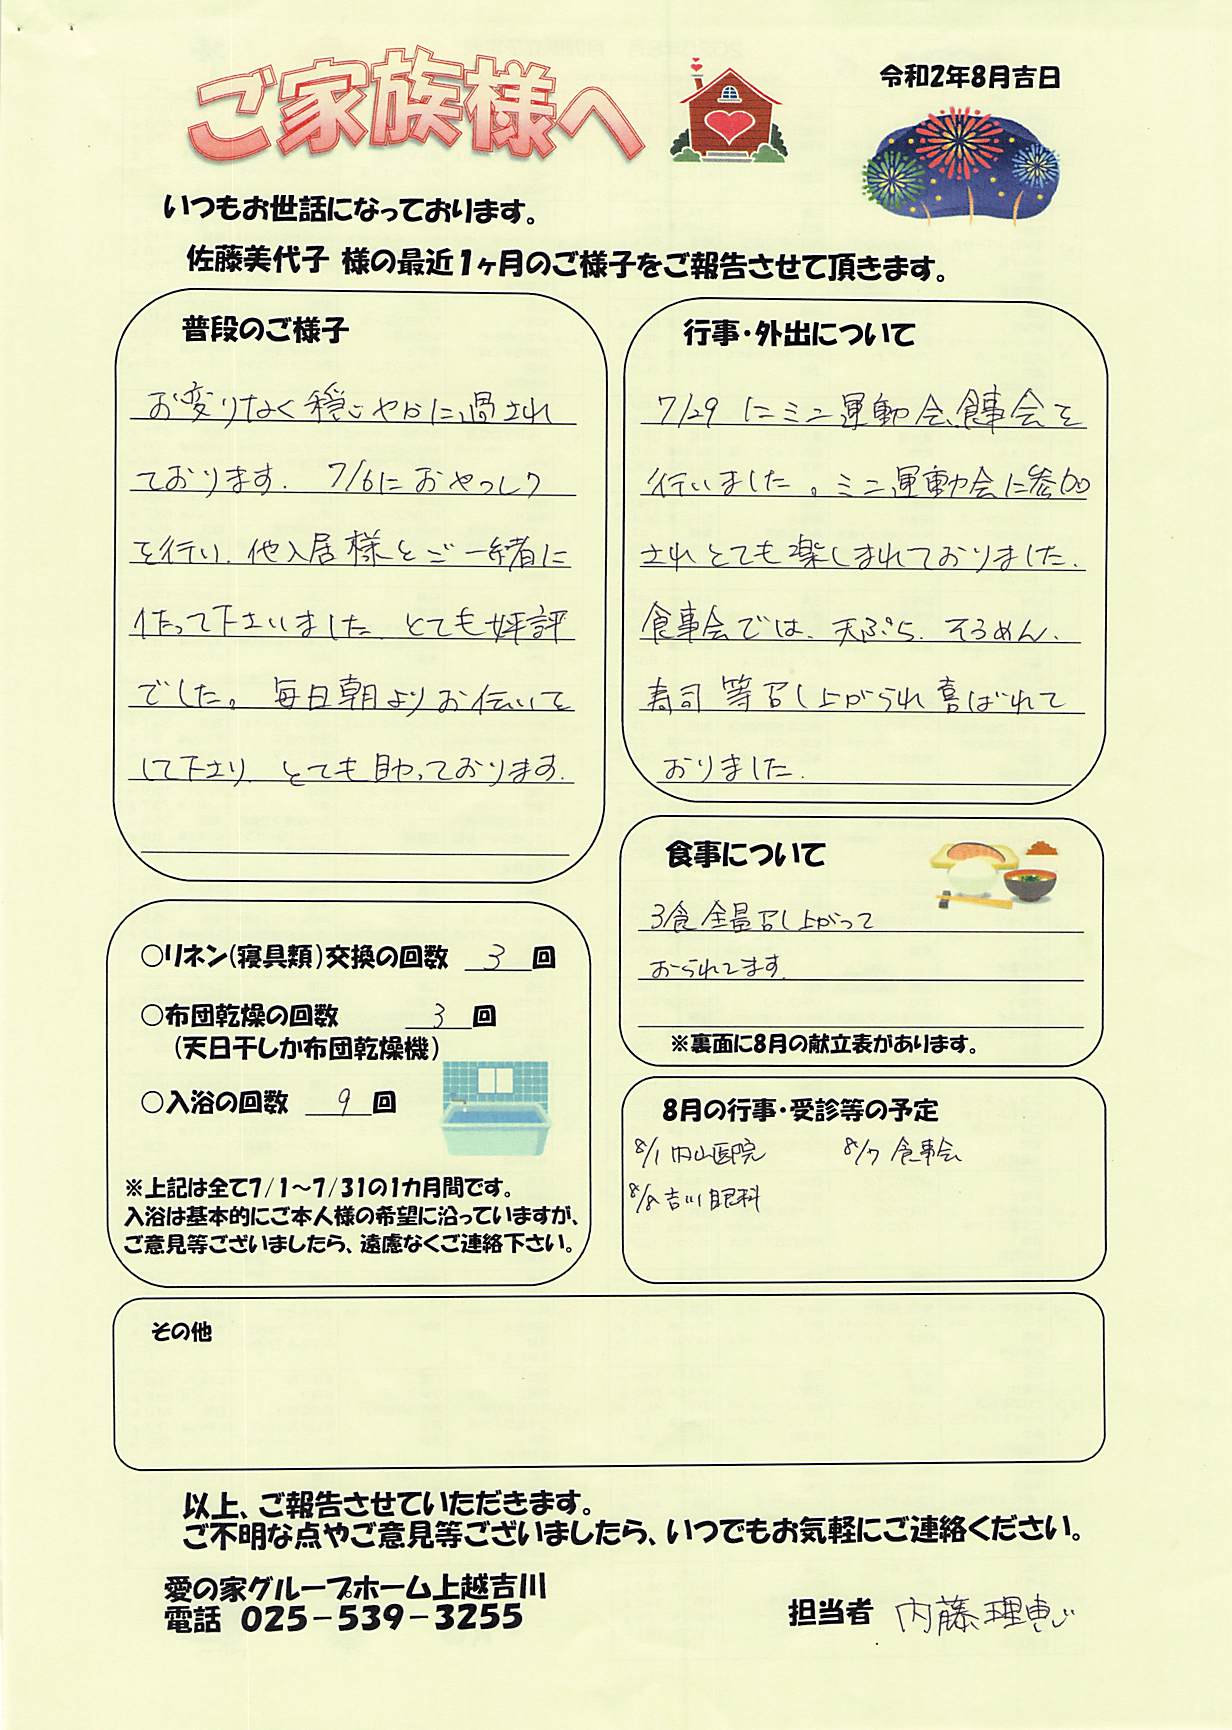 ご家族様へ
令和2年8月吉日
いつもお世話になっております。
佐藤美代子 様の最近1ヶ月のご様子をご報告させて頂きます。
普段のご様子
お変りなく穏やかに過され
ております. 7/6におやつレク
を行い、他入居様とご一緒に
作って下さいました とても好評
でした。毎日朝よりお伝いを
して下さり、とても助かっております.
行事・外出について
7/29 にミニ運動会、食事会を
行いました。ミニ運動会に参加
されとても楽しまれておりました.
食事会では、天ぷら、そうめん、
寿司等召し上がられ喜ばれて
おりました.
食事について
3食全量召し上がって
おられてます.
※裏面に8月の献立表があります。
○リネン(寝具類)交換の回数 3 回
○布団乾燥の回数 3 回
(天日干しか布団乾燥機)
○入浴の回数 9 回
※上記は全て7/1~7/31の1カ月間です。
入浴は基本的にご本人様の希望に沿っていますが、
ご意見等ございましたら、遠慮なくご連絡下さい。
8月の行事・受診等の予定
8/1 内山医院 8/7 食事会
8/8 吉川眼科
その他
以上、ご報告させていただきます。
ご不明な点やご意見等ございましたら、いつでもお気軽にご連絡ください。
愛の家グループホーム上越吉川
電話 025-539-3255
担当者 内藤理恵